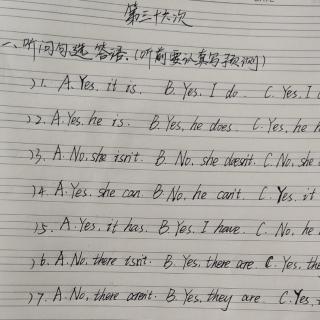 第三十六次
一、听问句选答语.(听前要认真写预测)
)1. A.Yes, it is. B.Yes, I do. C.Yes, I
)2. A.Yes, he is. B.Yes, he does. C.Yes, he
)3. A.No, she isn't. B.No, she doesn't. C.No, she
)4. A.Yes, she can. B.No, he can't. C.Yes, it
)5. A.Yes, it has. B.Yes, I have. C.No, he
)6. A.No, there isn't. B.Yes, there are. C.Yes, they
)7. A.No, there aren't. B.Yes, they are. C.Yes,